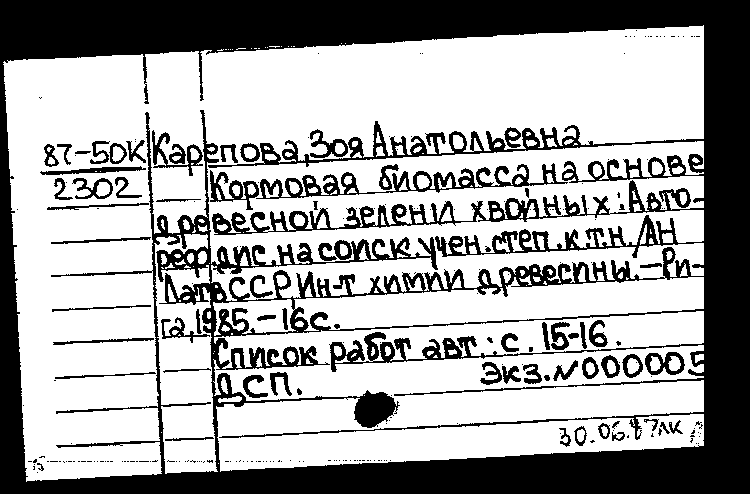 87-50К Карепова, Зоя Анатольевна.
2302 Кормовая биомасса на основе
древесной зелени хвойных: Авто-
реф. дис. на соиск. учен. степ. к.т.н. / АН
Латв ССР, Ин-т химии древесины. — Ри-
га, 1985. — 16 с.
Список работ авт.: с. 15-16.
ДСП. Экз. N 000005
30.06.87 лк